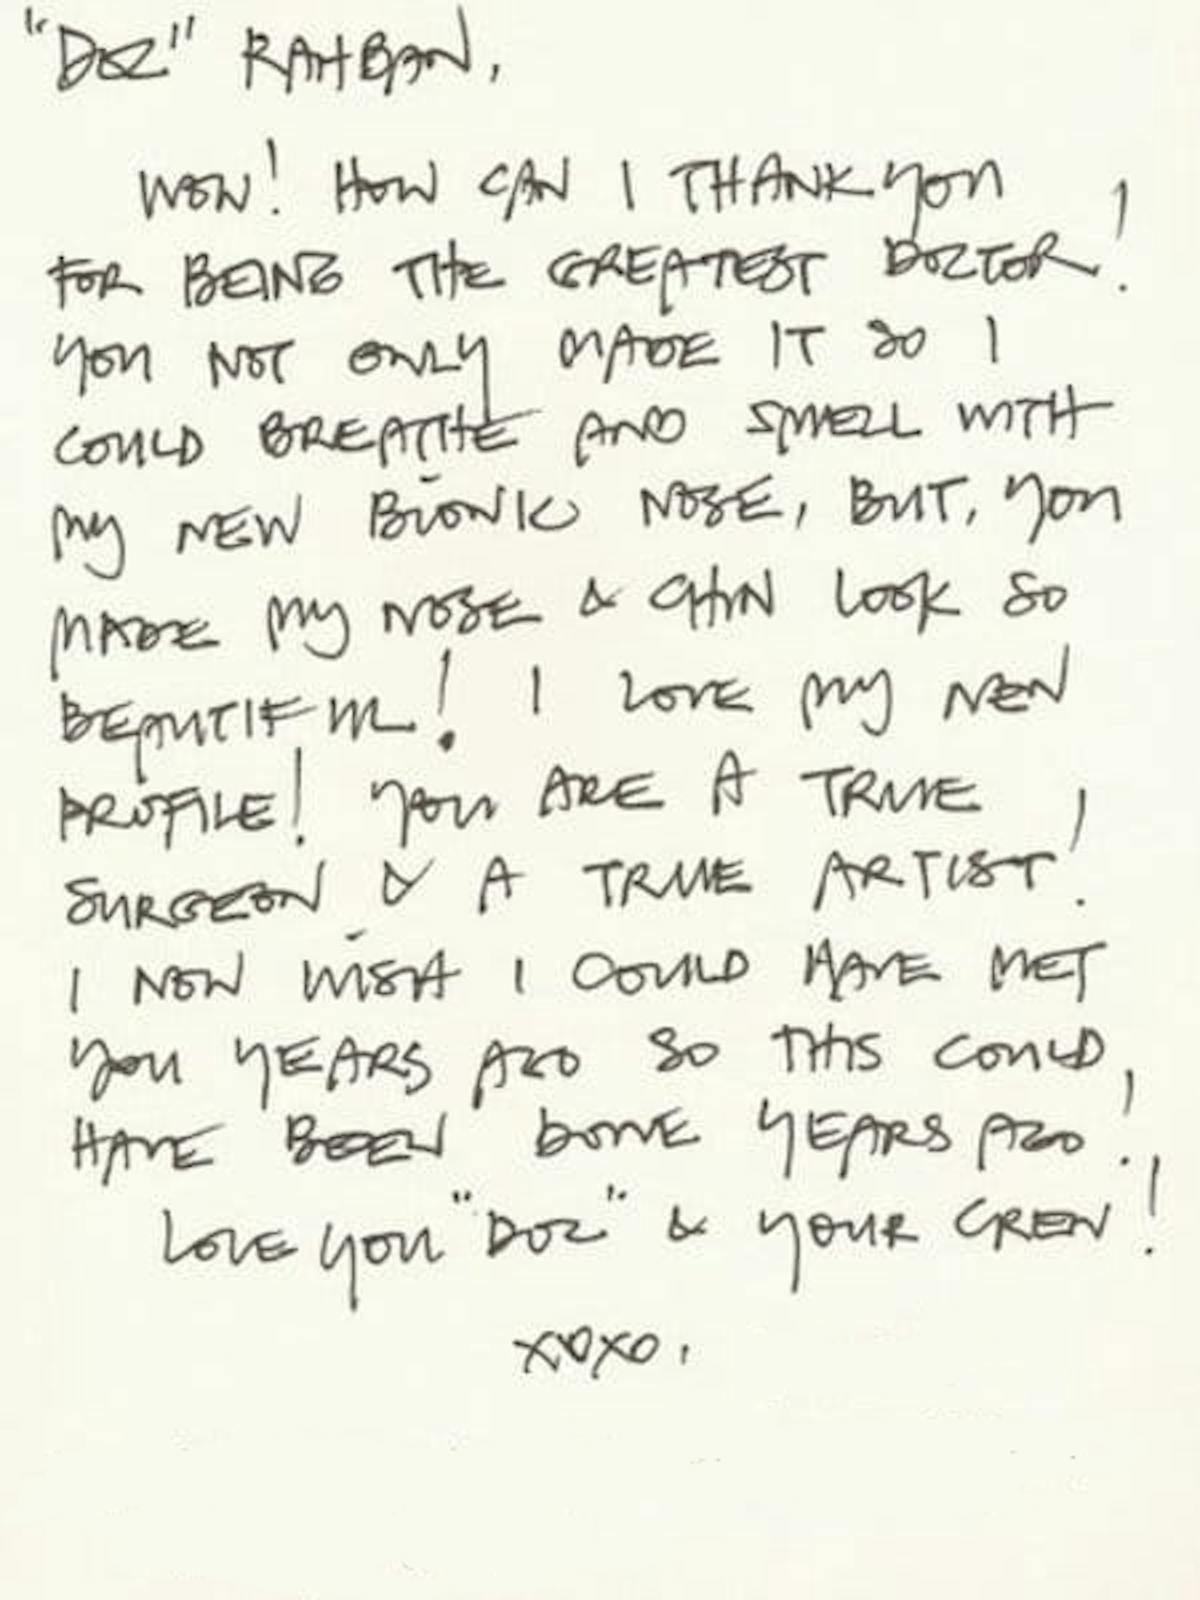 "DOC" RAHBAN,
WOW! HOW CAN I THANK YOU
FOR BEING THE GREATEST DOCTOR!
YOU NOT ONLY MADE IT SO I
COULD BREATHE AND SMELL WITH
MY NEW BIONIC NOSE, BUT, YOU
MADE MY NOSE & CHIN LOOK SO
BEAUTIFUL! I LOVE MY NEW
PROFILE! YOU ARE A TRUE
SURGEON & A TRUE ARTIST!
I NOW WISH I COULD HAVE MET
YOU YEARS AGO SO THIS COULD
HAVE BEEN DONE YEARS AGO!
LOVE YOU "DOC" & YOUR CREW!
XOXO,